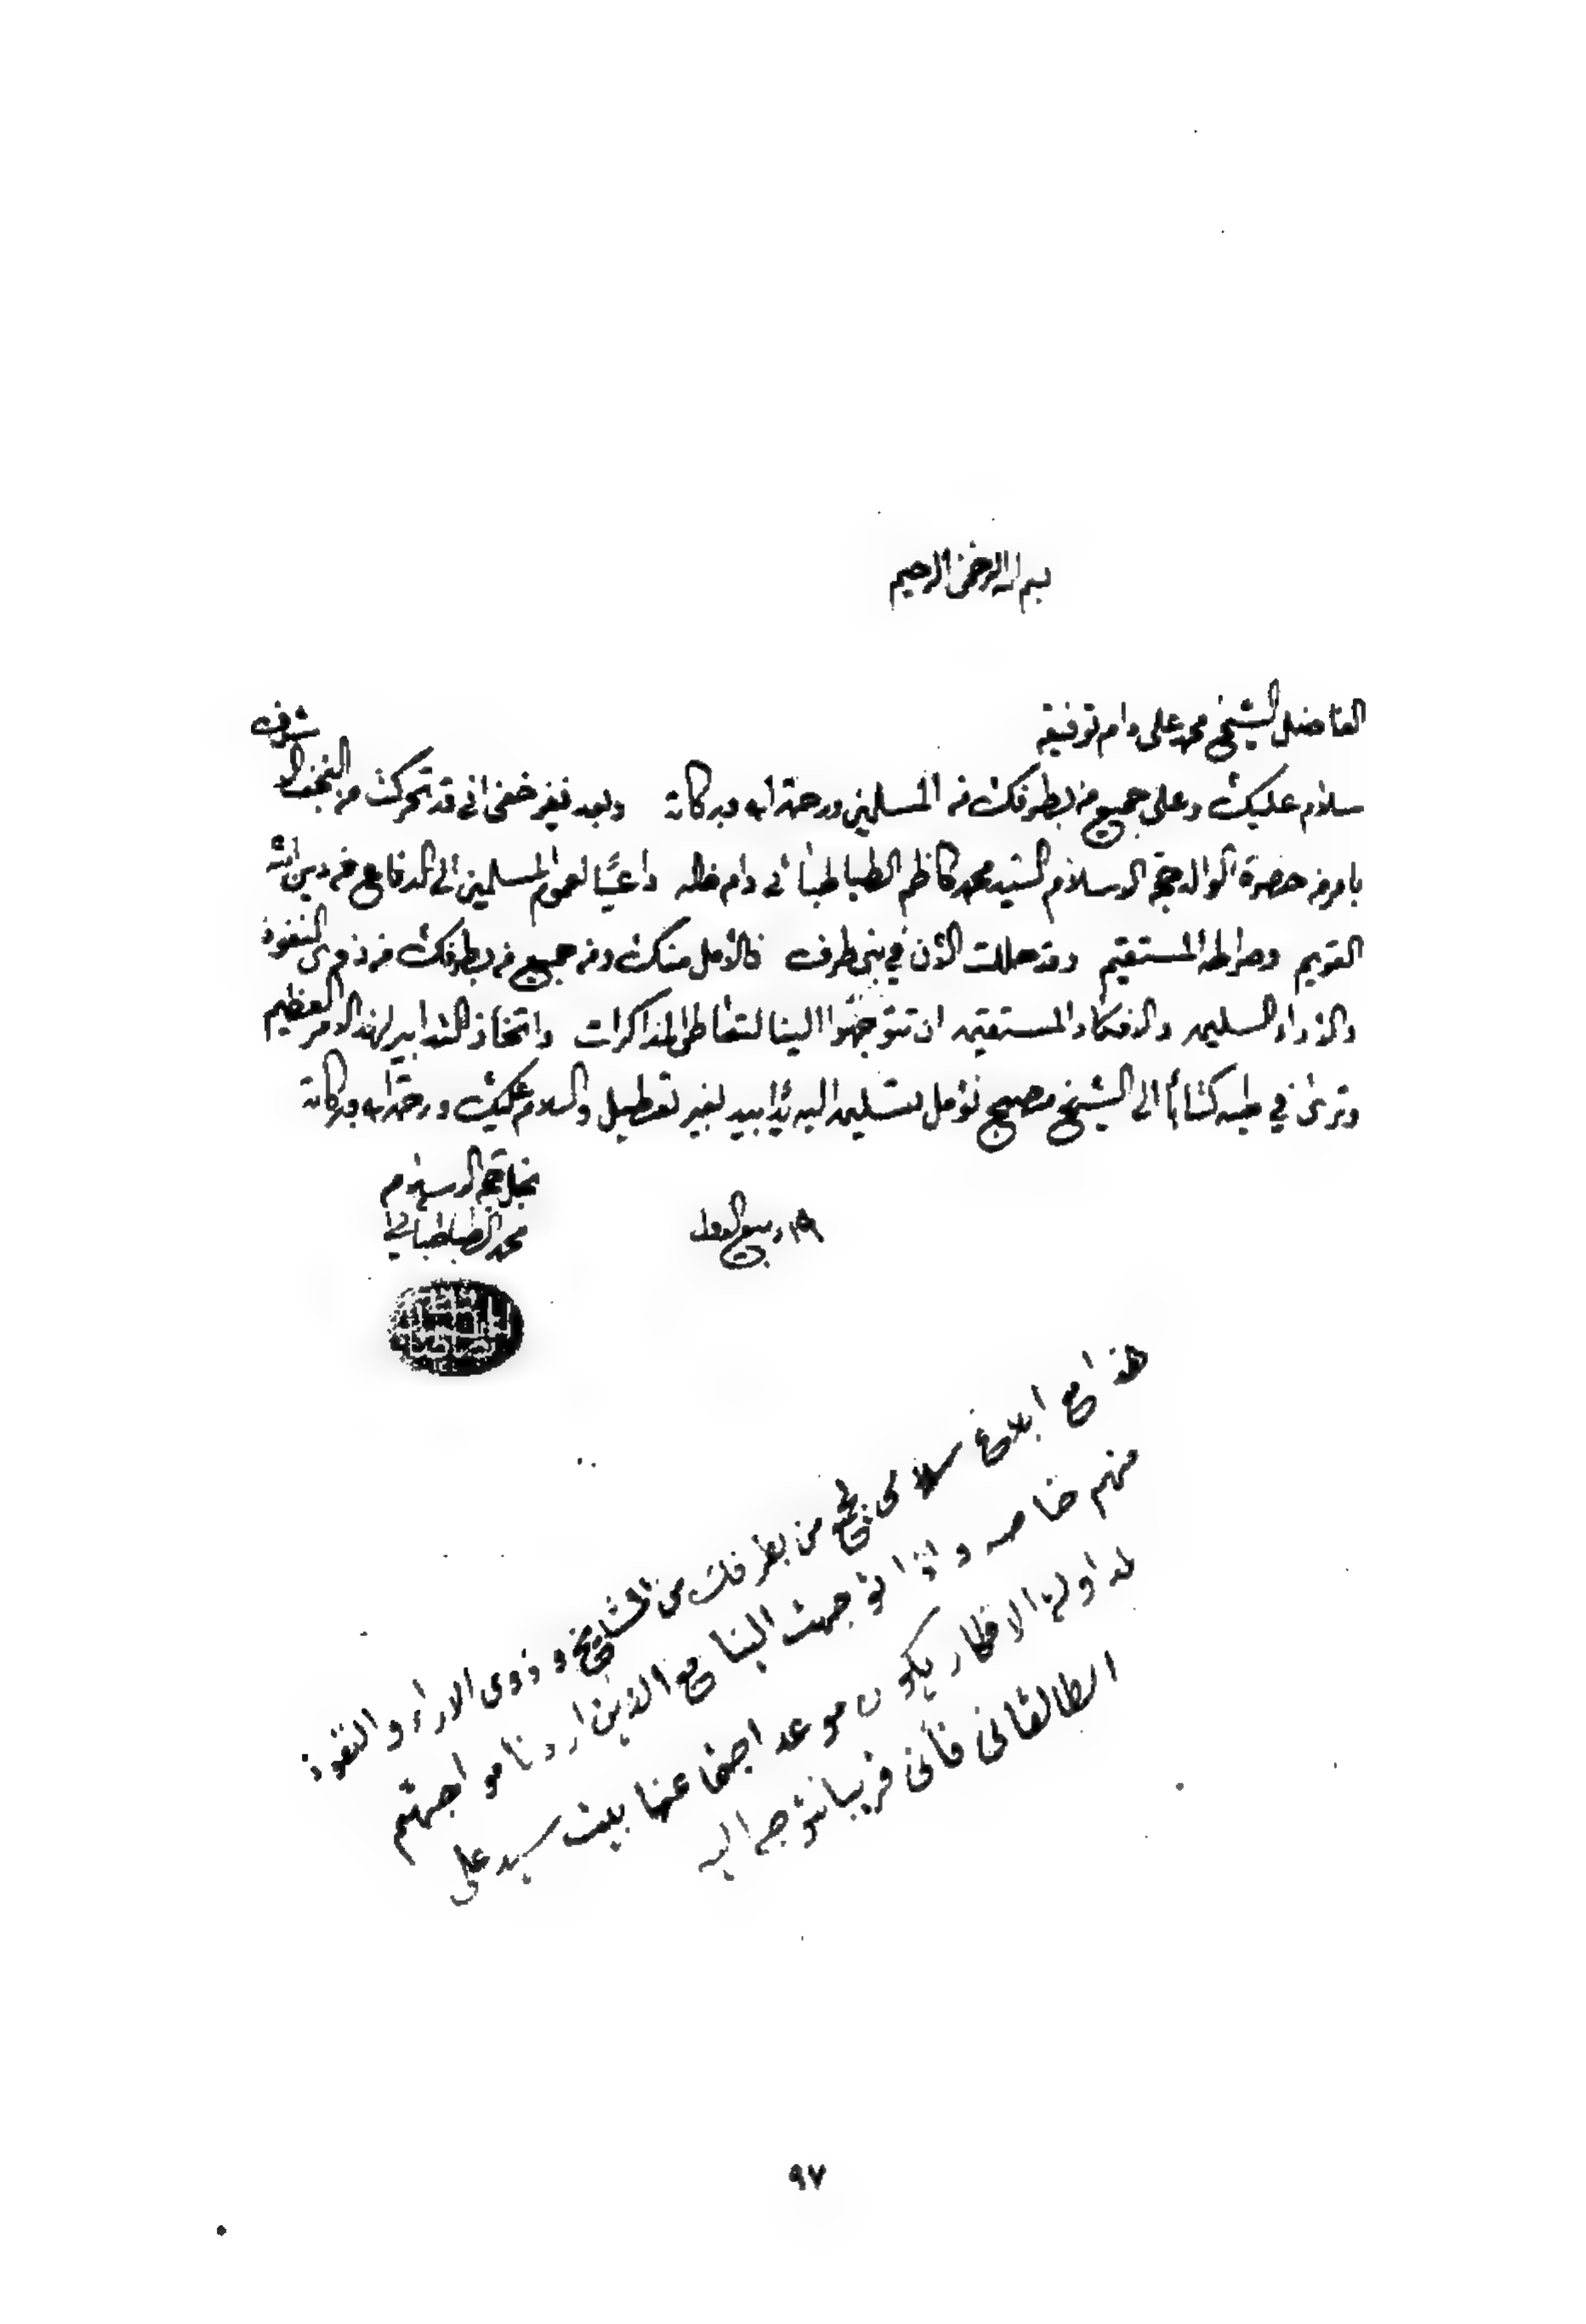 بسم الله الرحمن الرحيم
الفاضل الشيخ محمد علي دام توفيقه
سلام عليك وعلى جميع من بطرفك من المسلمين ورحمة الله وبركاته وبعد فغير خفي اني قد تحركت من النجف الاشرف
بامر من حضرة الوالد حجة الاسلام السيد محمد كاظم الطباطبائي دام ظله داعيًا لعموم المسلمين الى الدفاع عن دين الله
القويم وصراطه المستقيم وقد حللت الآن في بني طرف فالأمل منك ومن جميع من بطرفك من ذوي النفوذ
والآراء السليمه والافكار المستقيمه ان تتوجهوا الينا لنتعاطى المذاكرات واتخاذ التدابير لهذا الامر العظيم
وترى في طيه كتاباً الى الشيخ مصبح نؤمل تسليمه اليه يدًا بيد بغير تعطيل والسلام عليك ورحمة الله وبركاته
نجل حجة الاسلام
محمد الطباطبائي
١٩ ربيع الاول
هذا مع ابلاغ سلامي جميع من بطرفك من المشايخ وذوي الاراء والنفوذ
منهم خاصه واذا توجهت الينا مع الذين اردنا مواجهتهم
لمداولة الافكار يكون موعد اجتماعنا بيت سيد علي
الطالقاني فأني قريبا نتوجه اليه
٩٧